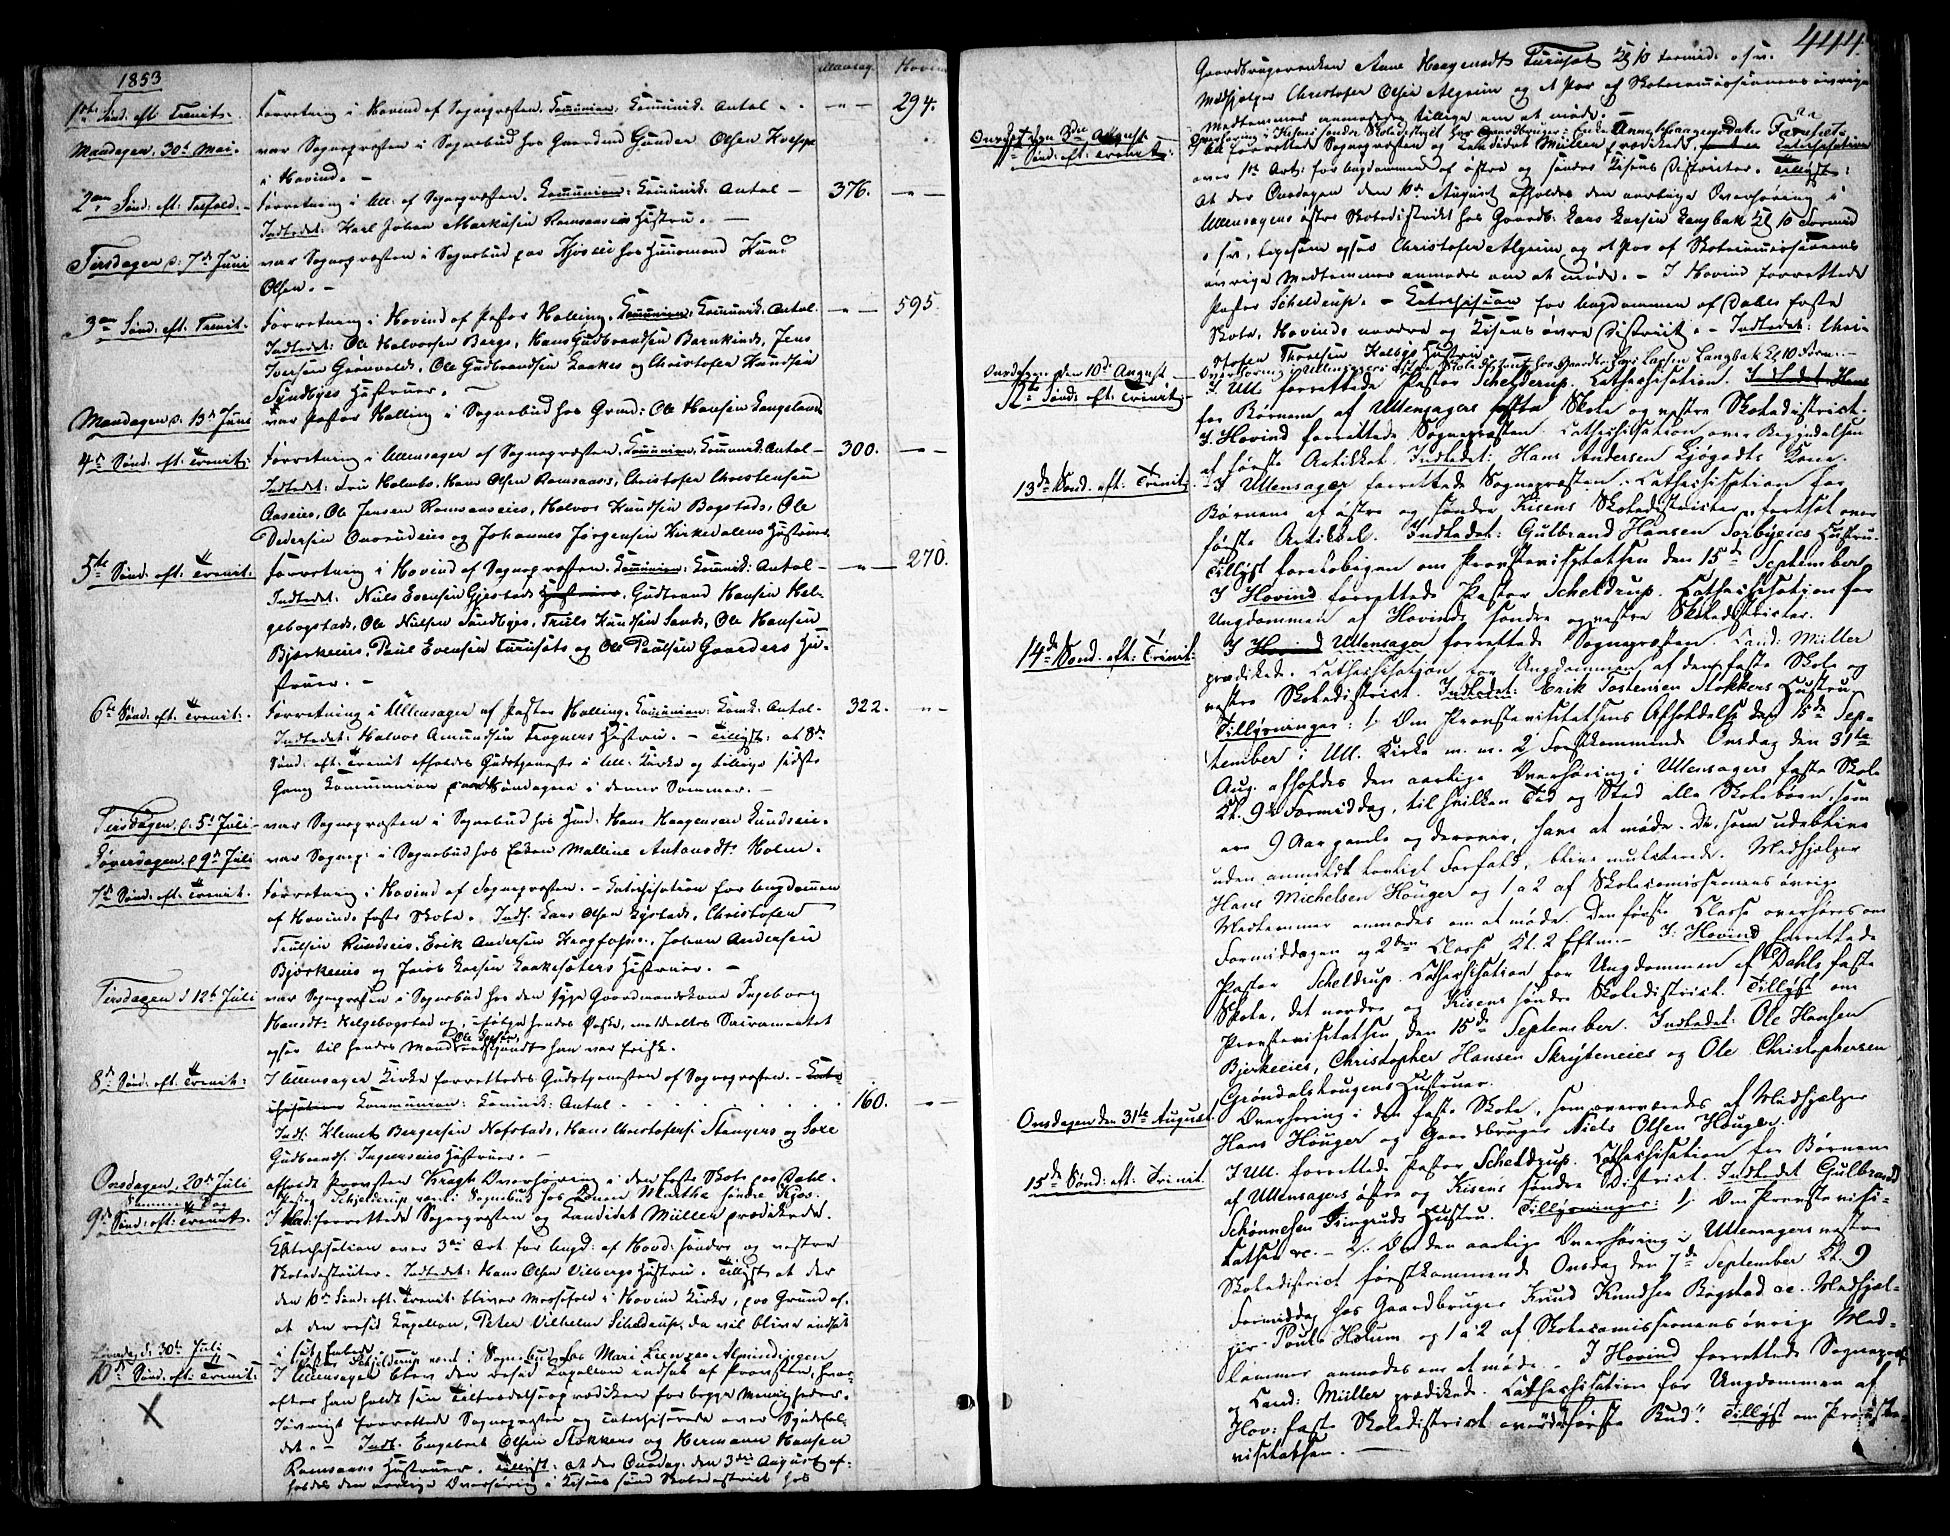 444.
1853
Ullensag. Hovin
1ste Sønd. eft. Trenit. Forretning i Hovind af Sognepræsten. Comunion. Comunik. Antal - — " — 294.
Mandagen 30te Mai - var Sognepræsten i Sognebud hos Gaardmd Gunder Olsen
i Hovind. -
2den Sønd. eft: Trefold. - Forretning i Ull. af Sognepræsten. Comunion: Comunik. Antal - 376. — " —
Indledet: Karl Johan Markusen Ramsaaseies Hustru. -
Tirsdagen d. 7de Juni var Sognepræsten i Sognebud paa hos Huusmand Knud
Olsen. -
3die Sønd. eft. Trenit. Forretning i Hovind af Pastor Halling. Comunion. Comunik. Antal. — " — 595.
Indledet: Ole Halvorsen Bergs, Hans Gudbrandsen Barnkinds, Jens
Iversen Grønvolds, Ole Gudbrandsen Laakes og Christofer Knudsen
Sundbyes Hustruer.
Mandagen d. 13de Juni var Pastor Halling i Sognebud hos Grmd: Ole Hansen Langeland
4de Sønd. eft. Trenit: Forretning i Ullensager af Sognepræsten. Comunion. Comunik: Antal - 300. — " —
Indledet: Fru Holmbo, Hans Olsen Ramsaas, Christofer Christensen
Aaseies, Ole Jensen Ramsaaseies, Halvor Knudsen Bogstads, Ole
Pedersen og Johannes Jørgensen Kirkedalens Hustruer.
5te Sønd. eft. Trenit: Forretning i Hovind af Sognepræsten. Comunion: Comunik: Antal - — " — 270.
Indledet: Niels Evensen Gjestads Hustrue, Gudbrand Hansen Hel-
gebogstads, Ole Nielsen Sundbyes, Truls Knudsen Sands, Ole Hansen
Bjerkeeies, Paul Evensen Furusets og Ole Paulsen Gaarders Hu-
struer. -
6te Sønd. eft. Trenit: - Forretning i Ullensager af Pastor Halling. Comunion: Comk. Antal - 322. " -
Indledet: Halvor Amundsen Trogners Hustru. - Tillyst: at 8de
Sønd. eft. Trenit afholdes Gudstjeneste i Ull. Kirke og tillige sidste
Gang Communion paa Søndagen i denne Sommer. -
Tirsdagen d. 5te Juli - var Sognepræsten i Sognebud hos Hans Haagensen Lundseie.
Løverdagen d 9de Juli var Sognep: i Sognebud hos Enken Malline Antonsdtr Holm.
7de Sønd. eft. Trenit. Forretning i Hovind af Sognepræsten. - Catechisation for Ungdommen
af Hovinds faste Skole. Indl. Lars Olsen Lystads, Christofer
Trulsen Rundseies, Erik Andersen Krogfoss, Johan Andersen
Bjerkeeies og Jacob Larsen Laakesæters Hustruer. -
Tirsdagen d 12te Juli var Sognepræsten i Sognebud hos den syge Gaardmandskone Ingeborg
Hansdtr Helgebogstad og, ifølge hendes Ønske, meddeeltes Sacramentet
ogsaa til hendes Mand, endskjøndt han var frisk.
8de Sønd. eft. Trenit: I Ullensager Kirke forrettedes Gudstjenesten af Sognepræsten. - Cate
chisation Communion: Comunik: Antal . . . . . 160. — " —
Indl. Klemet Bergersen Nafstads, Hans Christofers. Stangers og Lars
Gudbrands. Ingierseies Hustruer. -
Onsdagen 20de Juli afholdt Provsten Kragh Overhøring i den faste Skole paa Dahl.
Samme Dag Pastor Schjelderup vart. Sognebud hos Konen Martha søndre Kjos.
9de Sønd. eft: Trenit. I Ull: forrettede Sognepræsten og Candidat Müller prædikede.
Catechisation over 3die Art. for Ungd: af Hovd: søndre og vestre
Skoledistricter. Indledet: Hans Olsen Vilbergs Hustru. - Tillyst at der
den 10de Sønd. eft. Trenit: bliver Messefald i Hovind Kirke, paa Grund af,
at den resid Capellan, Peter Vilhelm Schelderup, da vil blive indsat
i sit Embede.
Løverdag d. 30te Juli Pastor Schjelderup vart i Sognebud hos Mari paa Almindingen
10de Sønd. eft: Trenit: I Ullensager blev den resid Capellan indsat af Provsten, hvor-
efter han holdt sin Tiltrædelsesprædiken for begge Menigheder.
X Iøvrigt forrettede Sognepræsten og catechiserede over Syndefal-
det. - Indl. Engebret Olsen Stokkers og Hermann Hansen
Ramsaas Hustruer. Tillyst: at der Onsdag: den 3die August af-
holdes den aarlige Overhøring i Kisens sønd Skoledistrict hos
Gaardbrugerenken Anne Haagensdt Furuset Kl 10 Formid. o.s.v.
Medhjelper Christofer Olsen Algrim og et Par af Skolecommissionens øvrige
Medlemmer anmodedes tillige om at møde. -
Onsdag den 3die August Overhøring i Kisens søndre Skoledistrict hos Gaardbruger: Enke Anne Haagensdatter Furuset.
11te Sønd: eft: Trenit: I Ull forrettede Sognepræsten og Candidat Müller prædikede. Catechisation
over 1ste Art: for Ungdommen af østre og søndre Kisens Districter. Tillyst:
At der Onsdagen den 10de August afholdes den aarlige Overhøring i
Ullensagers østre Skoledistrikt hos Gaardb: Lars Larsen Langbak Kl 10 Formid
o. s. v., ligesom ogsaa Christofer Algrim og et Par af Skolecommissionens
øvrige Medlemmer anmodes om at møde. - I Hovind forrettede
Pastor Schelderup. - Catechisation for Ungdommen af Dalles faste
Skole, Hovinds nordre og Kisens øvre District. - Indledet: Chri-
stofer Thorelsen Kalbyes Hustru
Onsdagen den 10de August - Overhøring i Ullensagers østre Skoledistrict hos Gaardbr. Lars Larsen Langbak Kl 10 Form. -
12te Sønd: eft: Trinit: I Ull. forrettede Pastor Schelderup. Cathechisation. Indledet Hans
for Børnene af Ullensagers faste Skole og vestre Skoledistrict.
I Hovind forrettede Sognepræsten. Cathechisation over Begyndelsen
af første Artikkel. Indledet: Hans Andersen Ljøgodts Kone.
13de Sønd. eft. Trinit: - I Ullensager forrettede Sognepræsten. Cathechisation for
Børnene af østre og søndre Kisens Skoledistricter, fortsat over
første Artikkel. Indledet: Gulbrand Hansen Sørbyeies Hustru.
Tillyst foreløbigen om Provstevisitatsen den 15de September.
I Hovind forrettede Pastor Scheldrup. Cathechisation for
Ungdommen af Hovinds søndre og vestre Skoledistricter.
14de Sønd. eft: Trinit: I Hovind Ullensager forrettede Sognepræsten. Cand: Müller
prædikede. Cathechisation for Ungdommen af den faste Skole og
vestre Skoledistrict. Indledet: Erik Tostensen Stokkers Hustru
Tillysninger: 1. Om Provstevisitatsens Afholdelse den 15de Sep-
tember i Ull. Kirke m. m. 2, Førstkommende Onsdag den 31te
Aug. afholdes den aarlige Overhøring i Ullensagers faste Skole
Kl. 9½ Formiddag, til hvilken Tid og Sted alle Skolebørn, som
ere 9 Aar gamle og derover, have at møde. De, som udeblive
uden anmeldt lovligt Forfald, blive mulcterede. Medhjelper
Hans Michelsen Houger og 1 a 2 af Skolecomissionens øvrige
Medlemmer anmodes om at møde. Den første Classe overhøres om
Formiddagen og 2den Classe Kl. 2 Efterm. - I Hovind forrettede
Pastor Scheldrup. Cathechisation for Ungdommen af Dahls faste
Skole, det nordre og Kisens søndre Skoledistrict. Tillyst om
Provstevisitatsen den 15de September. Indledet: Ole Hansen
Bjerkeeies, Christopher Hansen Skryteneies og Ole Christophersen
Grøndalshougens Hustruer.
Onsdagen den 31te August. Overhøring i den faste Skole, som overværedes af Medhjelper
Hans Houger og Gaardbruger Niels Olsen Houger.
15de Sønd: eft: Trinit. I Ull. forrettede Pastor Scheldrup. Cathechisation for Børnene
af Ullensagers østre og Kisens søndre District. Indledet Gulbrand
Schønnesen Hustru. Tillysninger: 1, Om Provstevisi-
tatsen &c. - 2, Om den aarlige Overhøring i Ullensagers vestre
Skoledistrict førstkommende Onsdag den 7de September Kl. 9
Formiddag hos Gaardbruger Knud Knudsen Bogstad &c. Medhjel-
per Poul Holum og 1 à 2 af Skolecomissionens øvrige Med-
lemmer anmodes om at møde. - I Hovind forrettede Sognepræst
og Cand: Müller prædikede. Cathechisation for Ungdommen af
Hov: faste Skoledistrict over det første Bud. Tillyst om Provste-
visitatsen. —